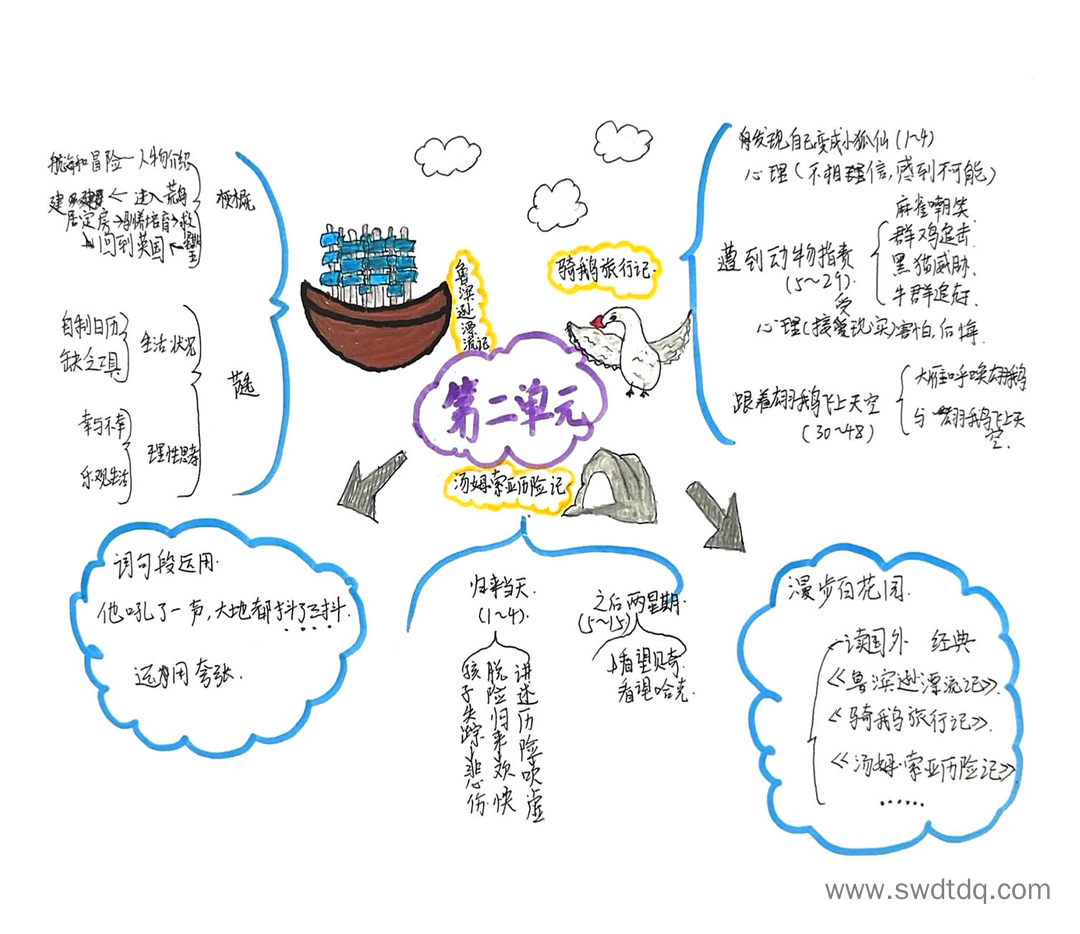 第二单元
鲁滨逊漂流记
航海和冒险一人物介绍
建 ← 进入荒岛
居定房→驯养培育→救
回到英国
梗概
自制日历
缺乏工具
生活状况
幸与不幸
乐观生活
理性思考
骑鹅旅行记.
发现自己变成小狐仙(1~4)
心理(不相信,感到不可能)
遭到动物指责
(5~29).
麻雀嘲笑
群鸡追击
黑猫威胁.
牛群追赶.
受
心理(接受现实)害怕,后悔.
跟着翅鹅飞上天空
(30~48)
大雁呼唤翅鹅
与翅鹅飞上天
空.
汤姆·索亚历险记
归来当天.
(1~4)
孩子失踪悲伤
脱险归来欢快
讲述历险吹虚
之后两星期.
(5~15)
看望贝奇.
看望哈克.
词句段运用.
他吼了一声,大地都抖了三抖.
运用夸张.
漫步百花园.
读国外 经典
《鲁滨逊漂流记》.
《骑鹅旅行记》.
《汤姆·索亚历险记》
……
www.swdtdq.com